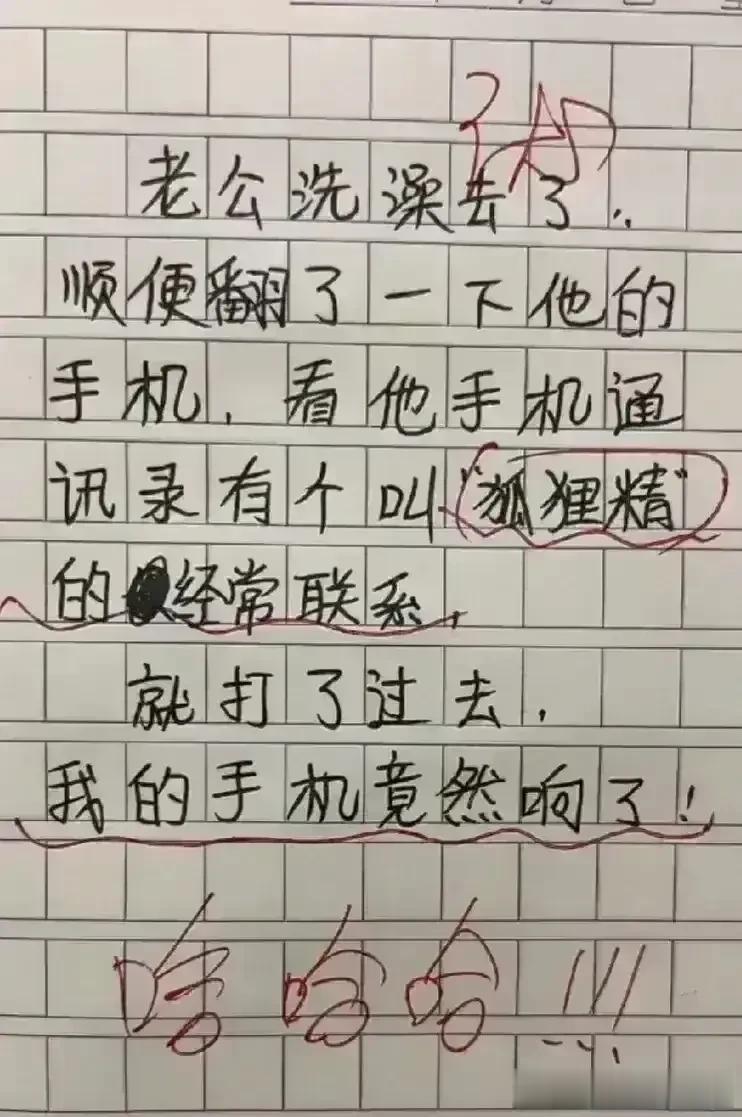 老公洗澡去了..
顺便翻了一下他的
手机,看他手机通
讯录有个叫“狐狸精”
的经常联系,
就打了过去,
我的手机竟然响了!
哈哈哈!!!